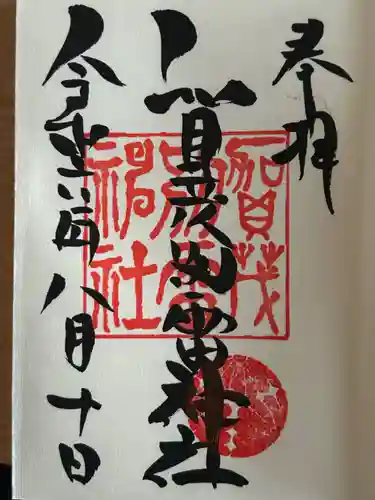 奉拝
賀茂別雷神社
令和六年八月十日
賀茂
別雷
神社